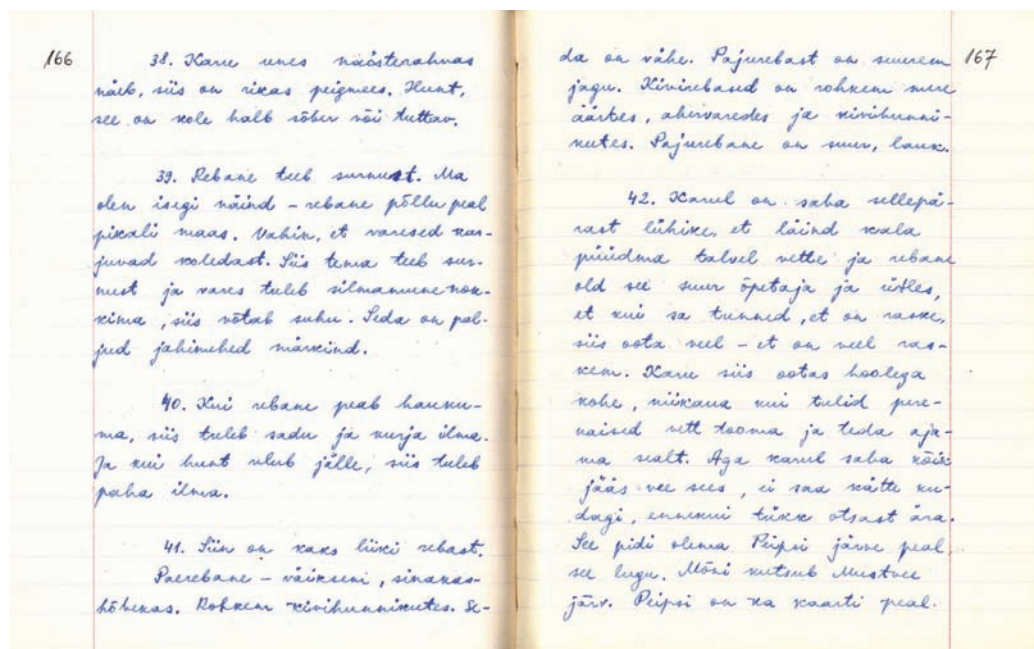 166
38. Karu unes naästerahvas
näeb, siis on rikas peigmees. Hunt,
see on kole halb sõber või tuttav.
39. Rebane teeb surnust. Ma
olen isegi näind – rebane põllu peal
pikali maas. Vahin, et varesed kar-
juvad koledast. Siis tema teeb sur-
nust ja vares tuleb silmamune nok-
kima, siis võtab suhu. Seda on pal-
jud jahimehed märkind.
40. Kui rebane peab hauku-
ma, siis tuleb sadu ja kurja ilma.
Ja kui hunt ulub jälle, siis tuleb
paha ilma.
41. Siin on kaks liiki rebast.
Paerebane – väiksem, sinakas-
hõbekas. Rohkem kivihunnikutes. Se-
167
da on vähe. Pajurebast on suurem
jagu. Kivirebased on rohkem mere
äärtes, ahervaredes ja kivihunni-
kutes. Pajurebane on suur, lauk.
42. Karul on saba sellepä-
rast lühike, et läind kala
püüdma talvel vette ja rebane
old see suur õpetaja ja ütles,
et kui sa tunned, et on raske,
siis oota veel – et on veel ras-
kem. Karu siis ootas hoolega
kohe, niikaua kui tulid pere-
naised vett tooma ja teda aja-
ma sealt. Aga karul saba kõik
jääs vee sees, ei saa kätte ku-
dagi, ennekui tükk otsast ära.
See pidi olema Peipsi järve peal
see lugu. Mõni kutsub Mustvee
järv. Peipsi on ka kaarti peal.